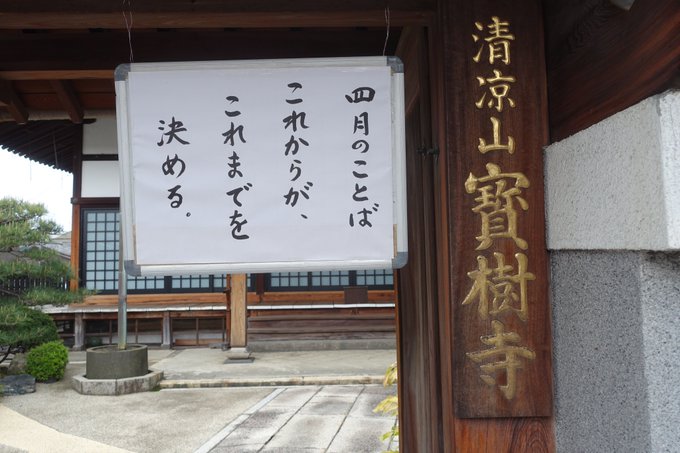 清凉山寳樹寺
四月のことば
これからが、
これまでを
決める。